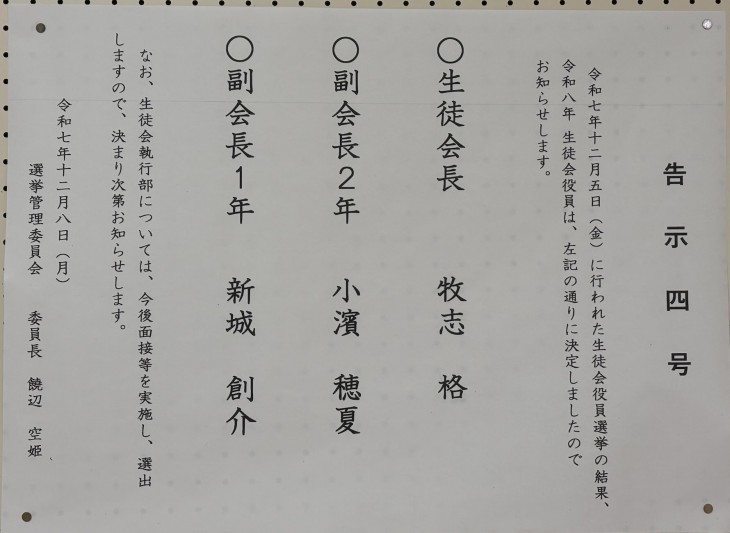 告示四号
令和七年十二月五日（金）に行われた生徒会役員選挙の結果、
令和八年 生徒会役員は、左記の通りに決定しましたので
お知らせします。
○生徒会長 牧志 格
○副会長２年 小濱 穂夏
○副会長１年 新城 創介
なお、生徒会執行部については、今後面接等を実施し、選出
しますので、決まり次第お知らせします。
令和七年十二月八日（月）
選挙管理委員会 委員長 饒辺 空姫